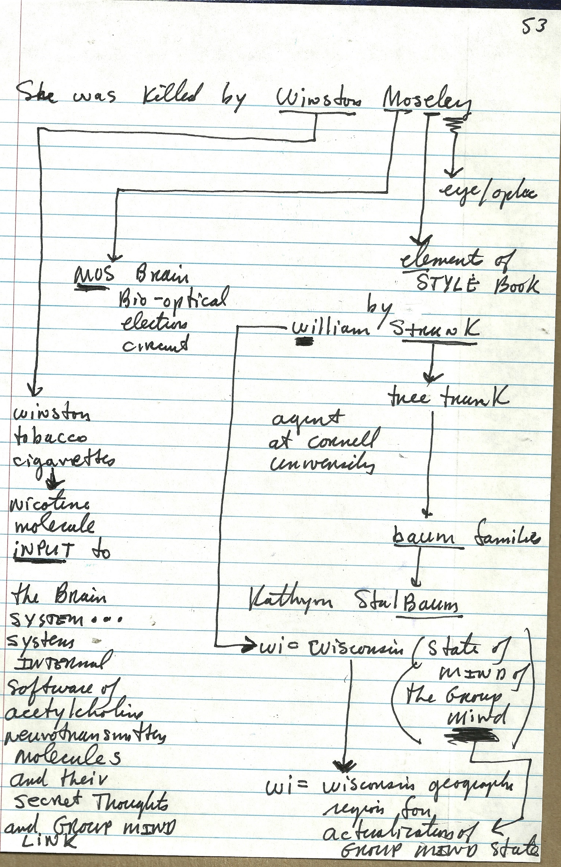 53
She was killed by Winston Moseley
eye/optic
MOS Brain
Bio-optical
electron
circuit
element of
STYLE BOOK
by
William Strunk
tree trunk
agent
at cornell
university
winston
tobacco
cigarettes
nicotine
molecule
INPUT to
baum families
Kathryn StalBaum
the Brain
SYSTEM...
systems
INTERNAL
Software of
acetylcholine
neurotransmitters
molecules
and their
secret Thoughts
and GROUP MIND
LINK
wi = Wisconsin (State of
MIND of
the Group
Mind)
wi = wisconsin geographic
region for
actualization of
GROUP MIND State